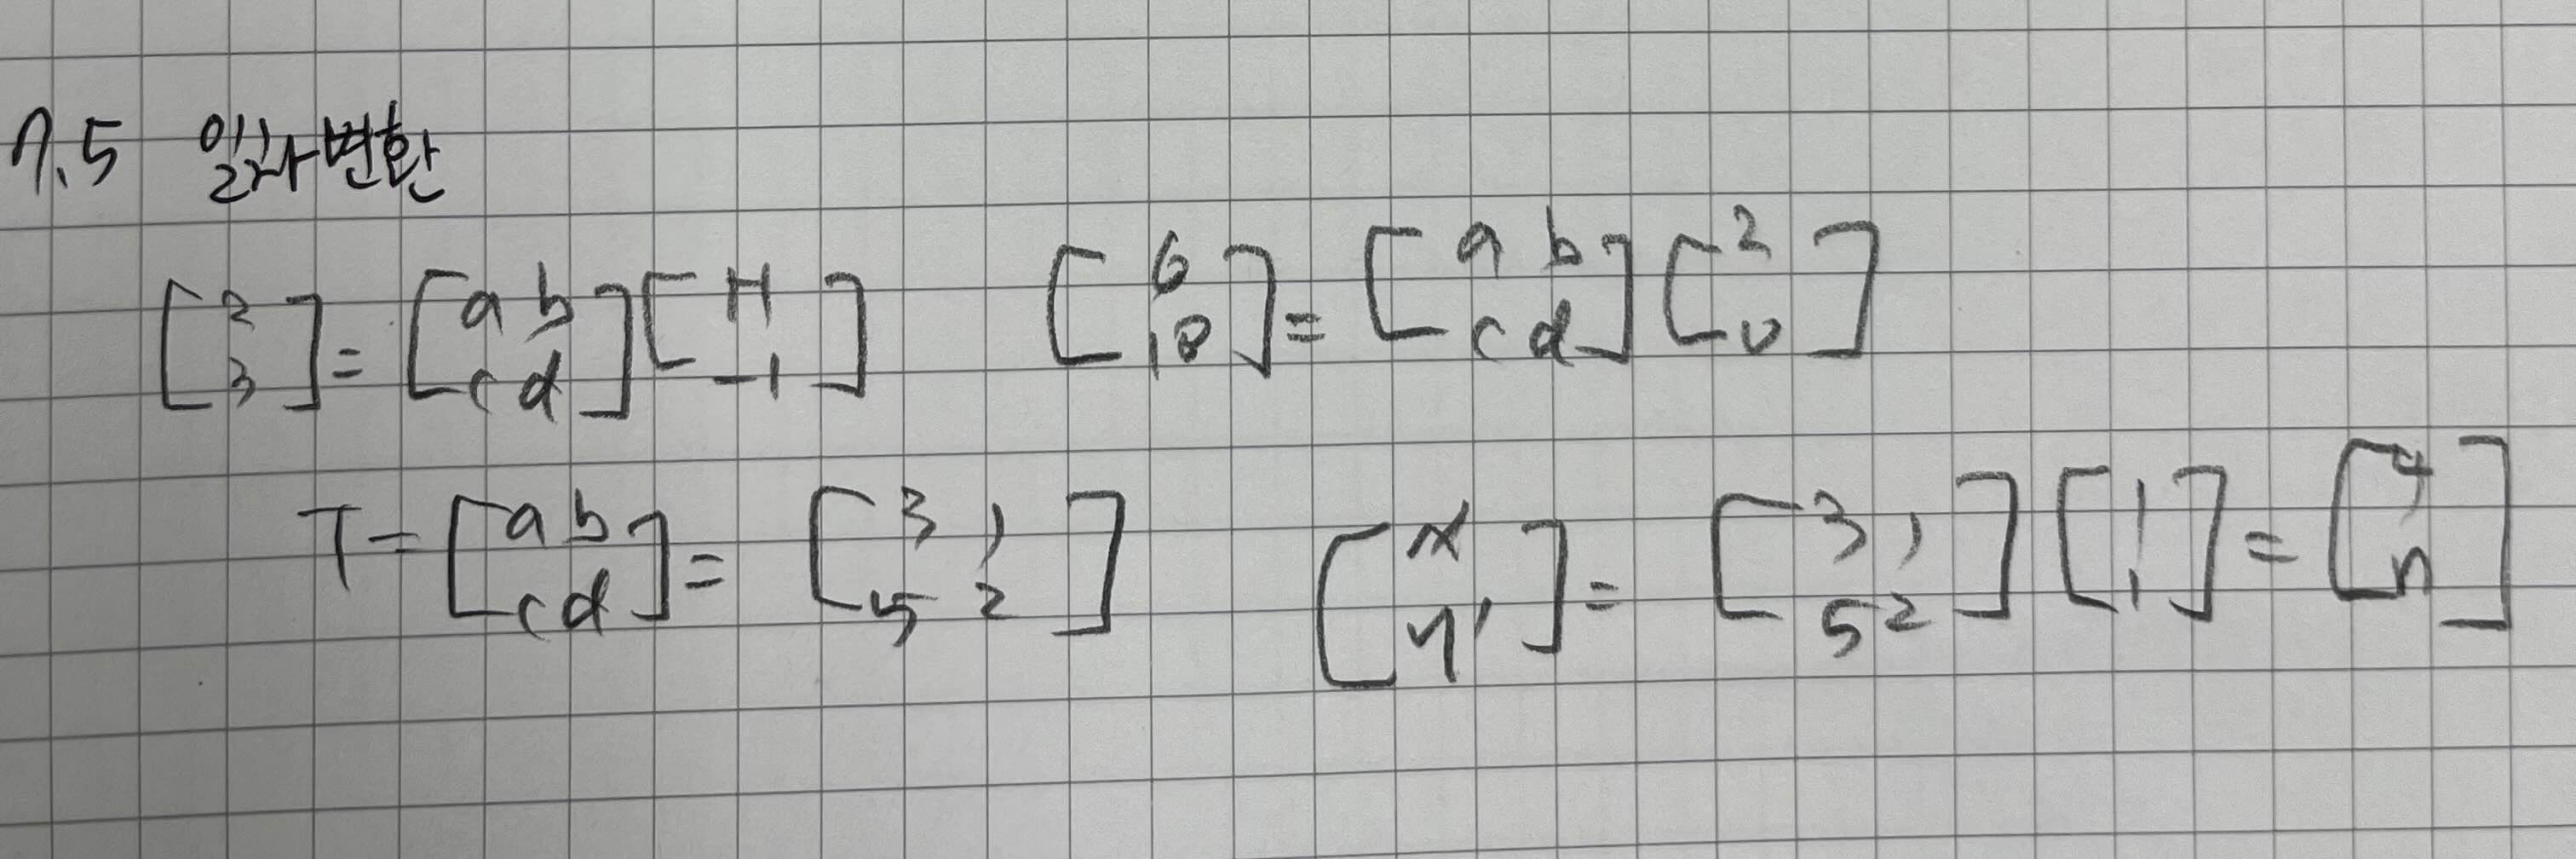 7.5 일차변환
[2 3] = [a b c d] [+1 -1] [6 10] = [a b c d] [2 0]
T = [a b c d] = [3 1 5 2] [x' y'] = [3 1 5 2] [1 1] = [4 7]